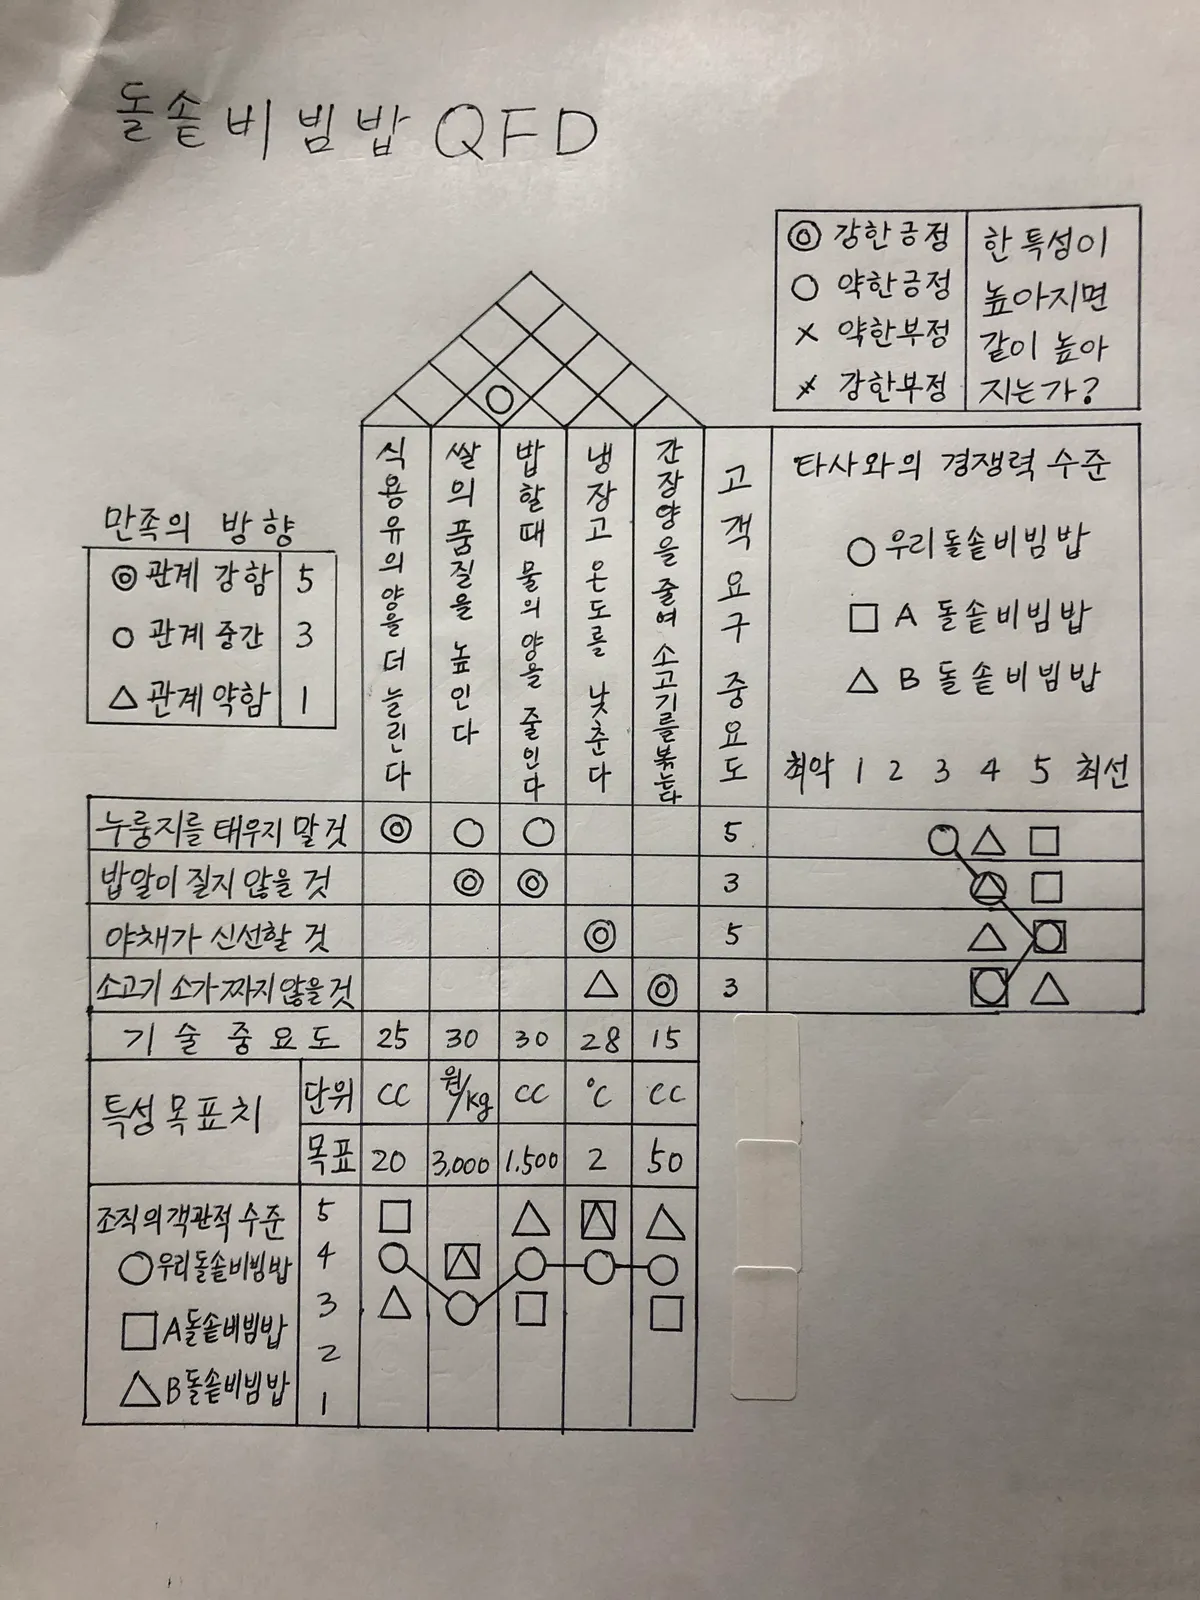 돌솥비빔밥 QFD
◎ 강한긍정
○ 약한긍정
× 약한부정
강한부정
한 특성이
높아지면
같이 높아
지는가?
만족의 방향
◎ 관계 강함 5
○ 관계 중간 3
△ 관계 약함 1
식용유의 양을 더 늘린다
쌀의 품질을 높인다
밥할때 물의 양을 줄인다
냉장고 온도를 낮춘다
간장양을 줄여 소고기를볶는다
고객요구 중요도
타사와의 경쟁력 수준
○ 우리돌솥비빔밥
□ A 돌솥비빔밥
△ B 돌솥비빔밥
최악 1 2 3 4 5 최선
누룽지를 태우지 말것 ◎ ○ ○ 5
밥알이 질지 않을 것 ◎ ◎ 3
야채가 신선할 것 ◎ 5
소고기 소가 짜지않을것 △ ◎ 3
기술중요도 25 30 30 28 15
특성목표치
단위 CC 원/kg CC ℃ CC
목표 20 3,000 1,500 2 50
조직의객관적수준
○우리돌솥비빔밥
□A돌솥비빔밥
△B돌솥비빔밥
5
4
3
2
1